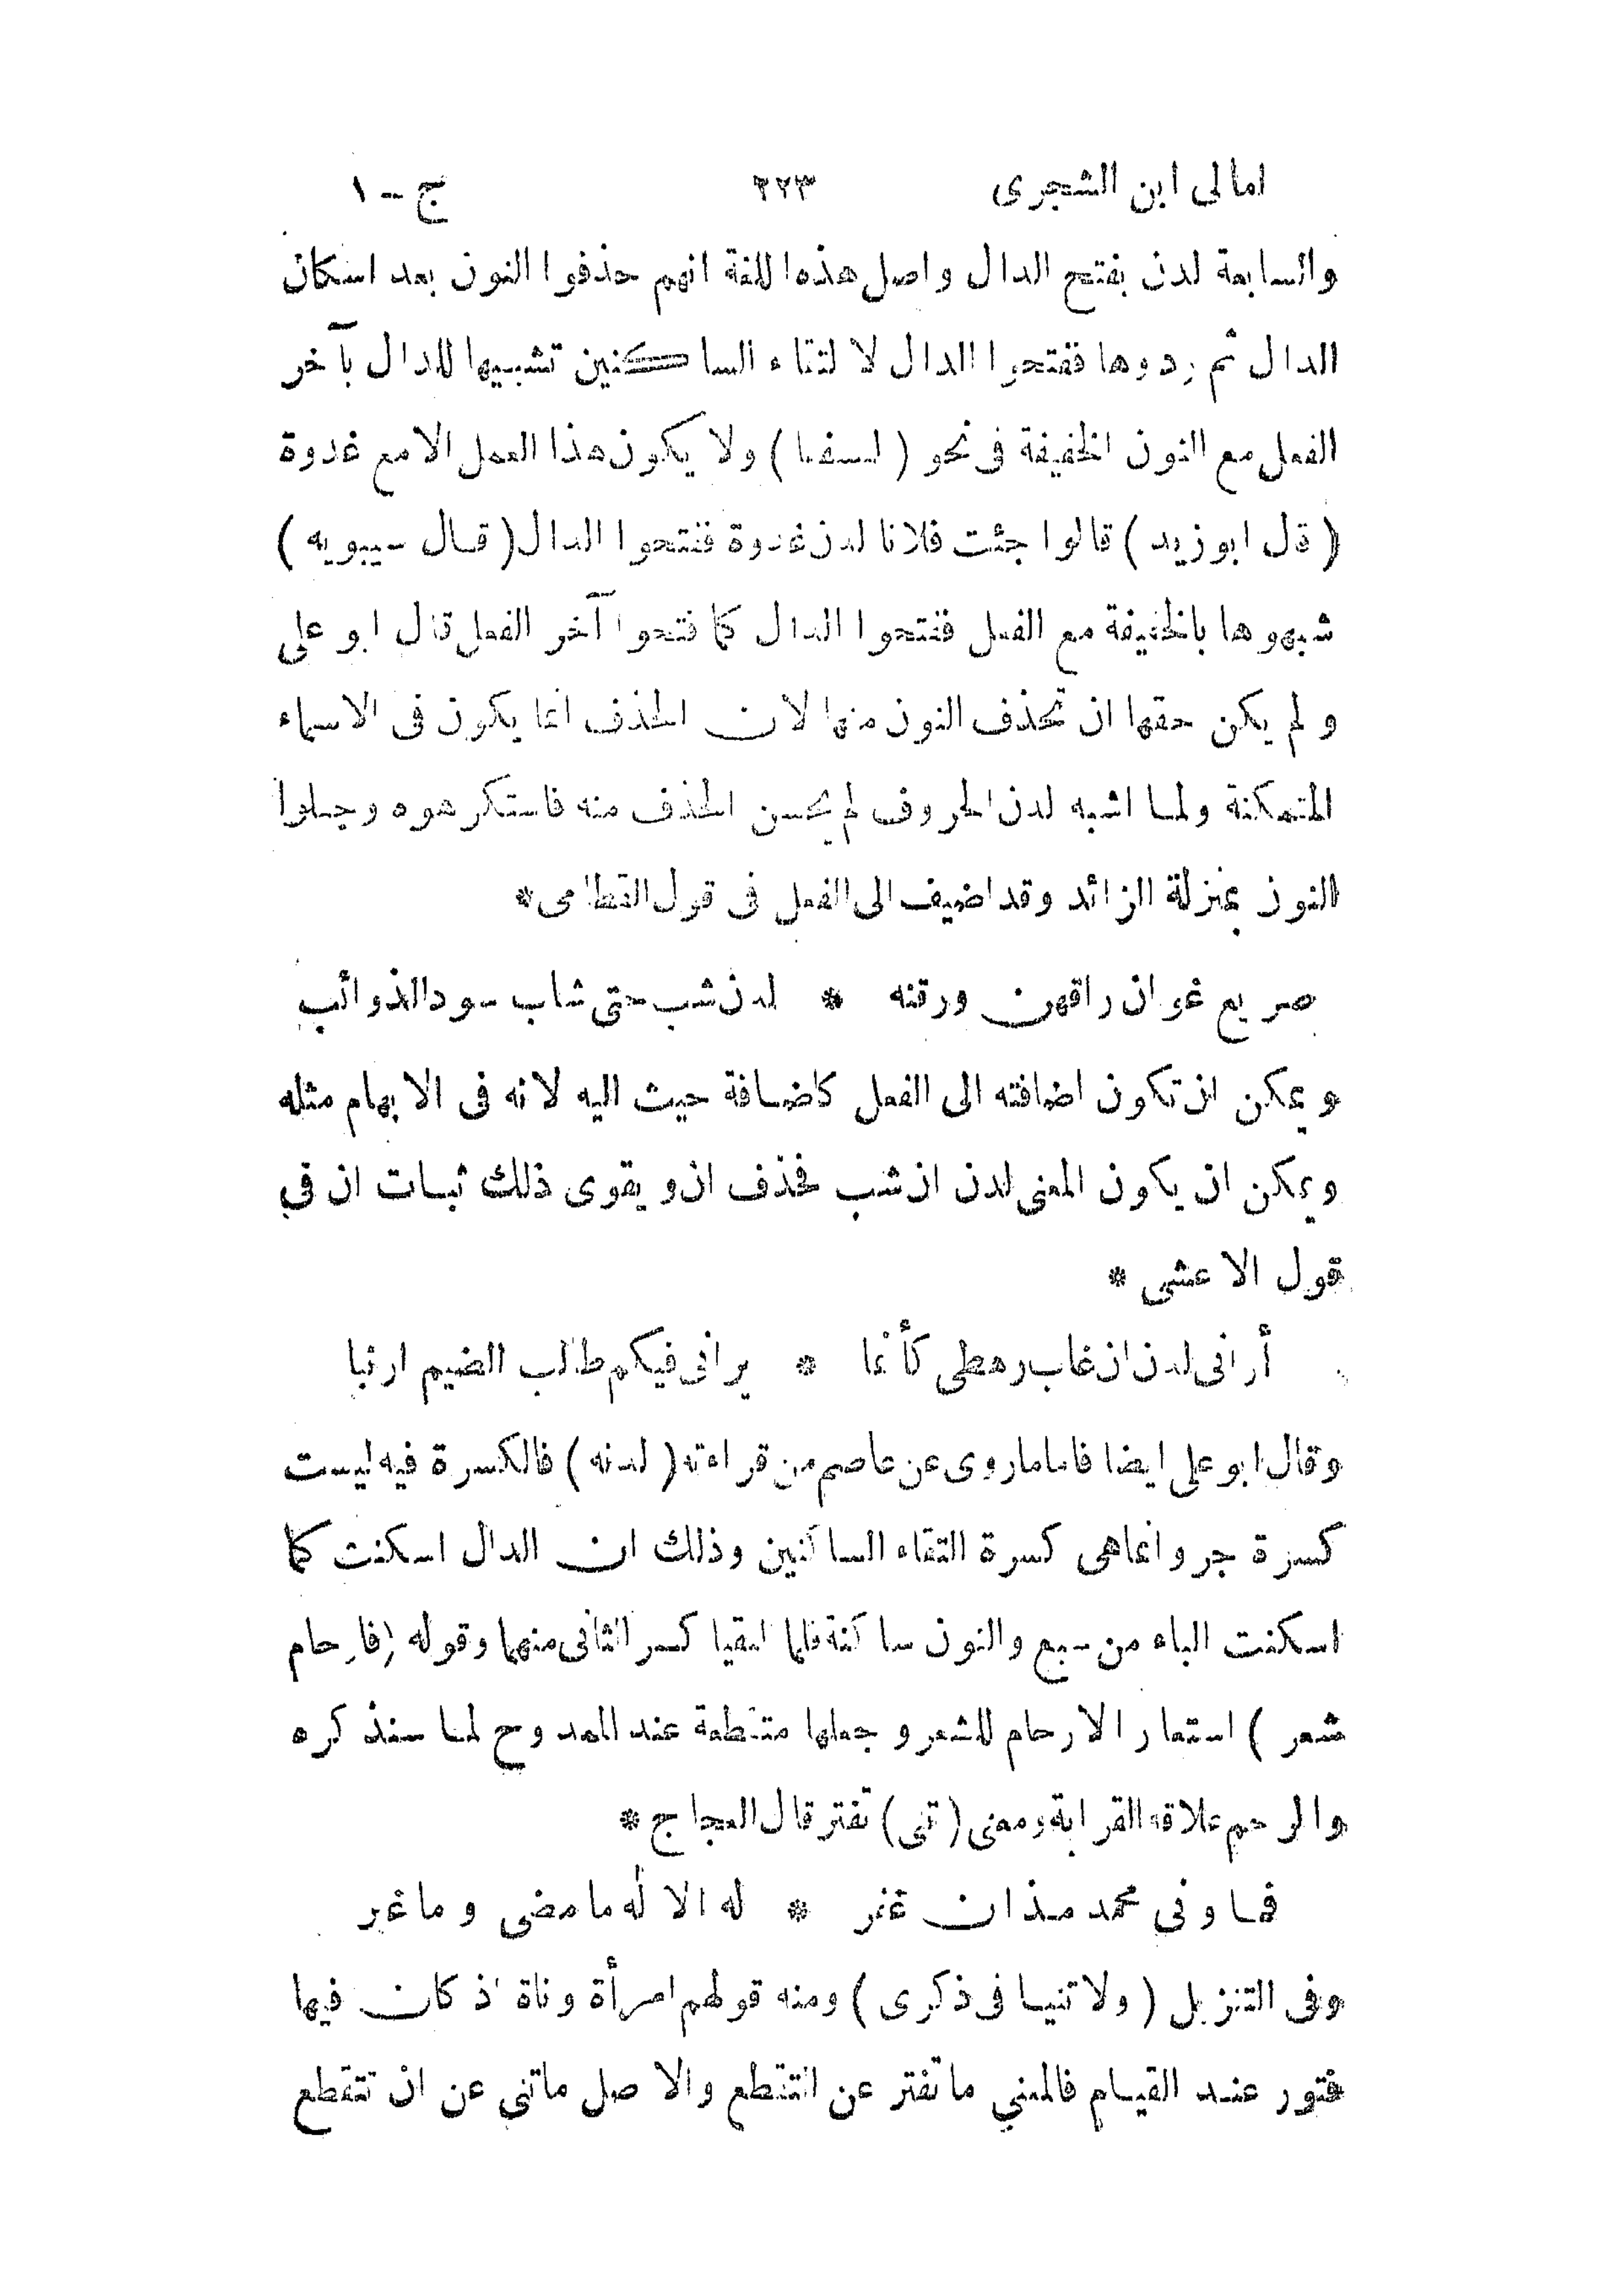 امالى ابن الشجرى ٢٢٣ ج - ١
والسابعة لدن بفتح الدال واصل هذه اللغة انهم حذفوا النون بعد اسكان
الدال ثم ردوها ففتحوا الدال لالتقاء الساكنين تشبيها للدال بآخر
الفعل مع النون الخفيفة فى نحو ( لنسفعا ) ولا يكون هذا العمل الا مع غدوة
( قال ابو زيد ) قالوا جئت فلانا لدن غدوة ففتحوا الدال ( قال سيبويه )
شبهوها بالخفيفة مع الفعل ففتحوا الدال كما فتحوا آخر الفعل قال ابو على
ولم يكن حقها ان تحذف النون منها لان الحذف انما يكون فى الاسماء
المتمكنة ولما اشبه لدن الحروف لم يحسن الحذف منه فاستكرهوه وجعلوا
النون بمنزلة الزائد وقد اضيف الى الفعل فى قول القطامى *
صريع غوان راقهن ورقنه * لدن شب حتى شاب سود الذوائب
ويمكن ان تكون اضافته الى الفعل كاضافة حيث اليه لانه فى الابهام مثله
ويمكن ان يكون المعنى لدن ان شب فحذف ان ويقوى ذلك ثبات ان فى
قول الاعشى *
أرانى لدن ان غاب رهطى كأنما * يرانى فيكم طالب الضيم ارنبا
وقال ابو على ايضا فاما ماروى عن عاصم من قراءته ( لدنه ) فالكسرة فيه ليست
كسرة جر وانما هى كسرة التقاء الساكنين وذلك ان الدال اسكنت كما
اسكنت الباء من سبع والنون ساكنة فلما التقيا كسر الثانى منهما وقوله ( فارحام
شعر ) استعار الارحام للشعر وجعلها متقطعة عند الممدوح لما سنذكره
والرحم علاقة القرابة ومعنى ( تنى ) تفتر قال العجاج *
فما ونى محمد مذ ان غفر * له الا له ما مضى وما غبر
وفى التنزيل ( ولا تنيا فى ذكرى ) ومنه قولهم امرأة وناة اذ كان فيها
فتور عند القيام فالمعنى ما تفتر عن التقطع والاصل ماتنى عن ان تتقطع